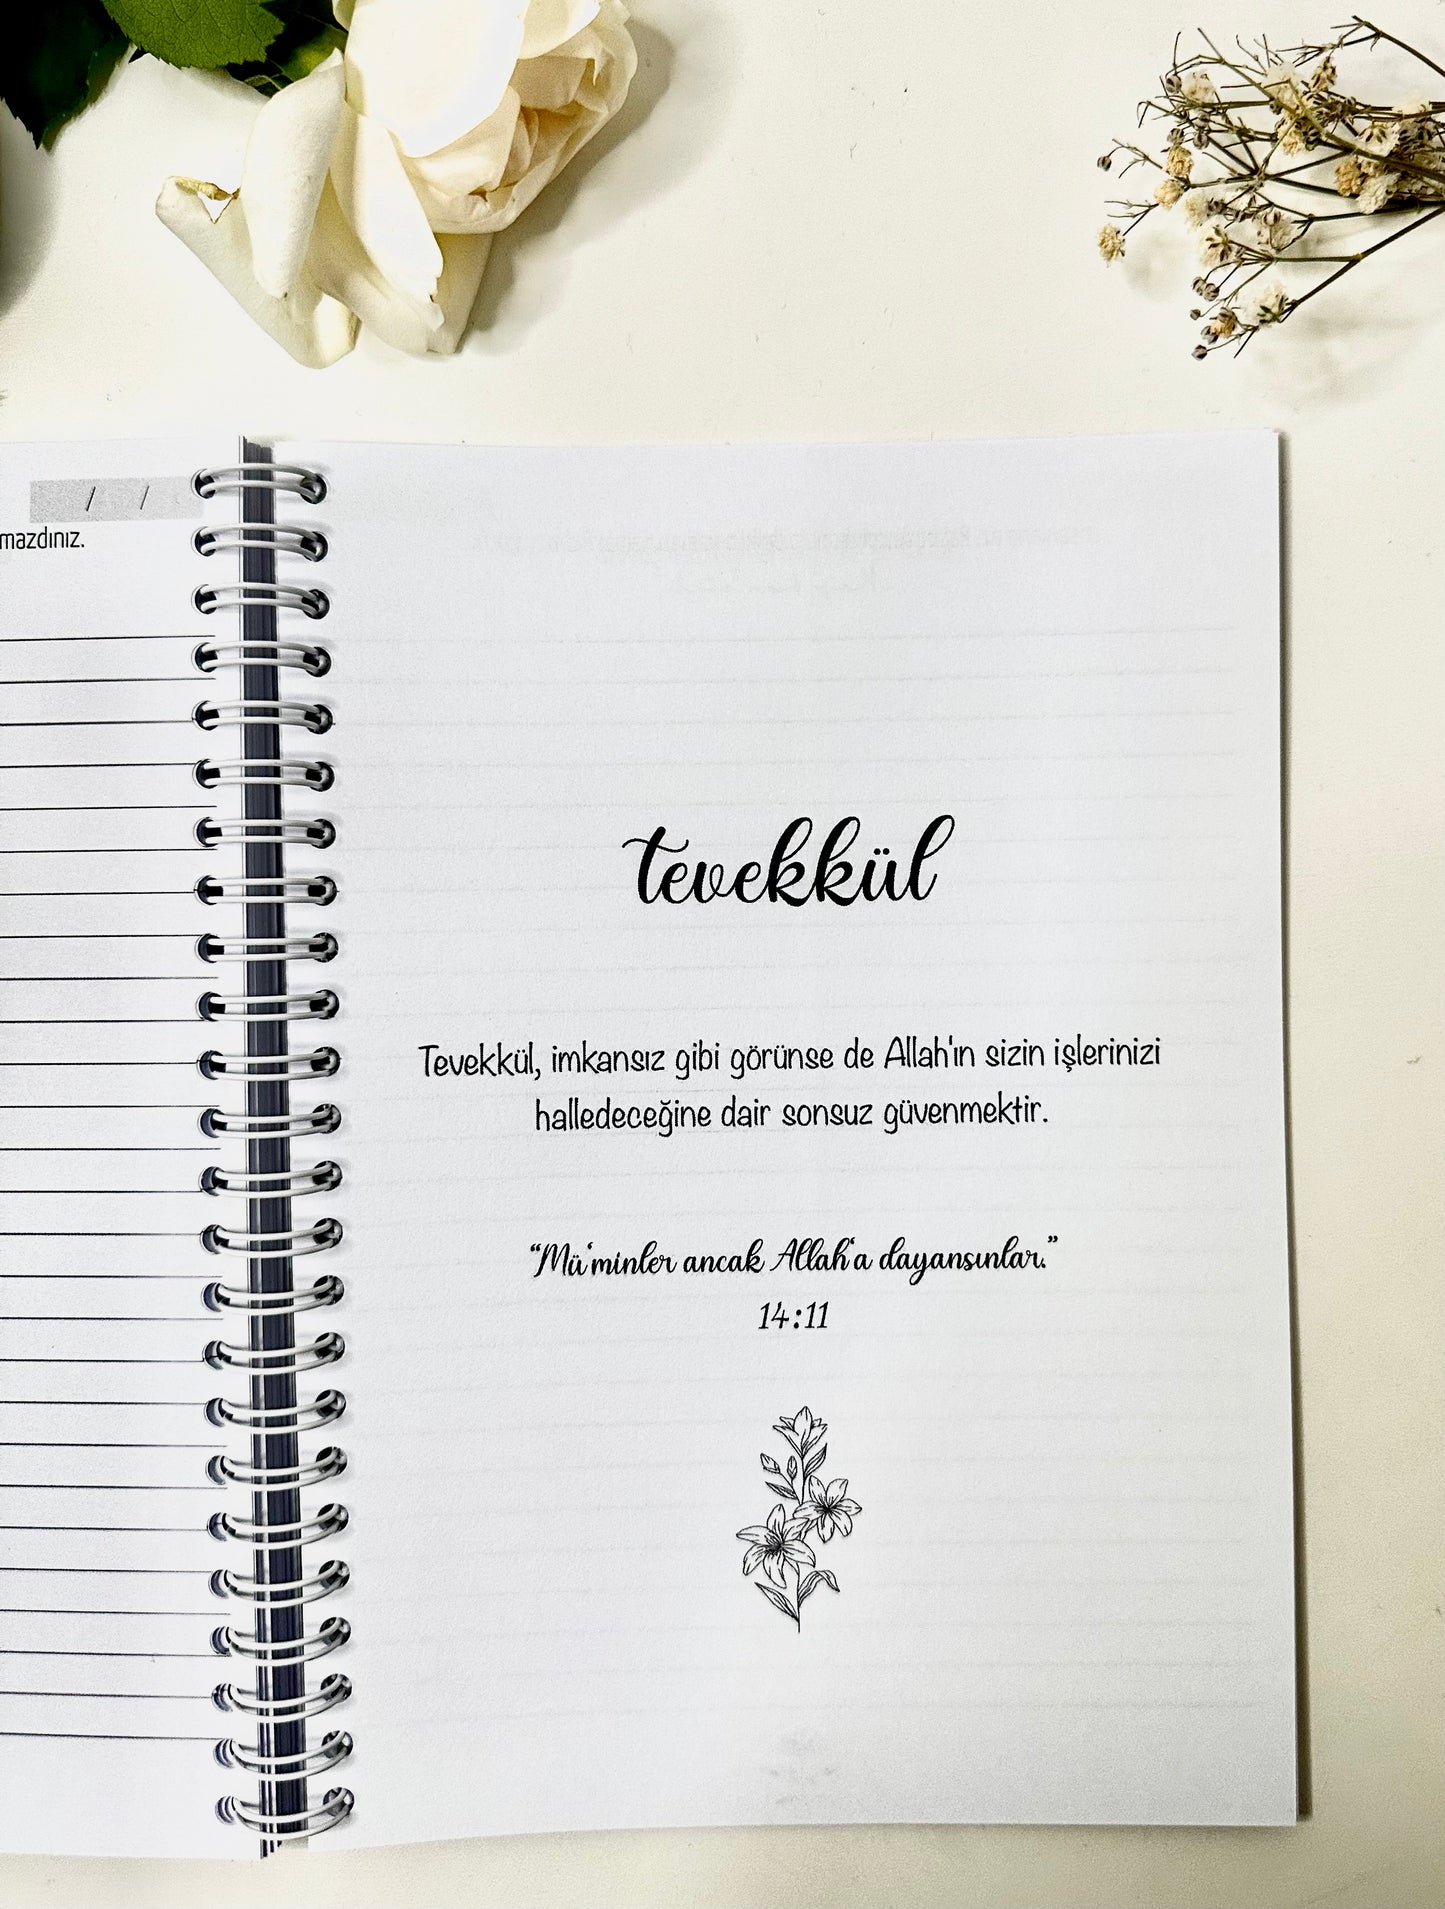 / /
mazdınız.
tevekkül
Tevekkül, imkansız gibi görünse de Allah'ın sizin işlerinizi
halledeceğine dair sonsuz güvenmektir.
“Mü‘minler ancak Allah‘a dayansınlar.”
14:11